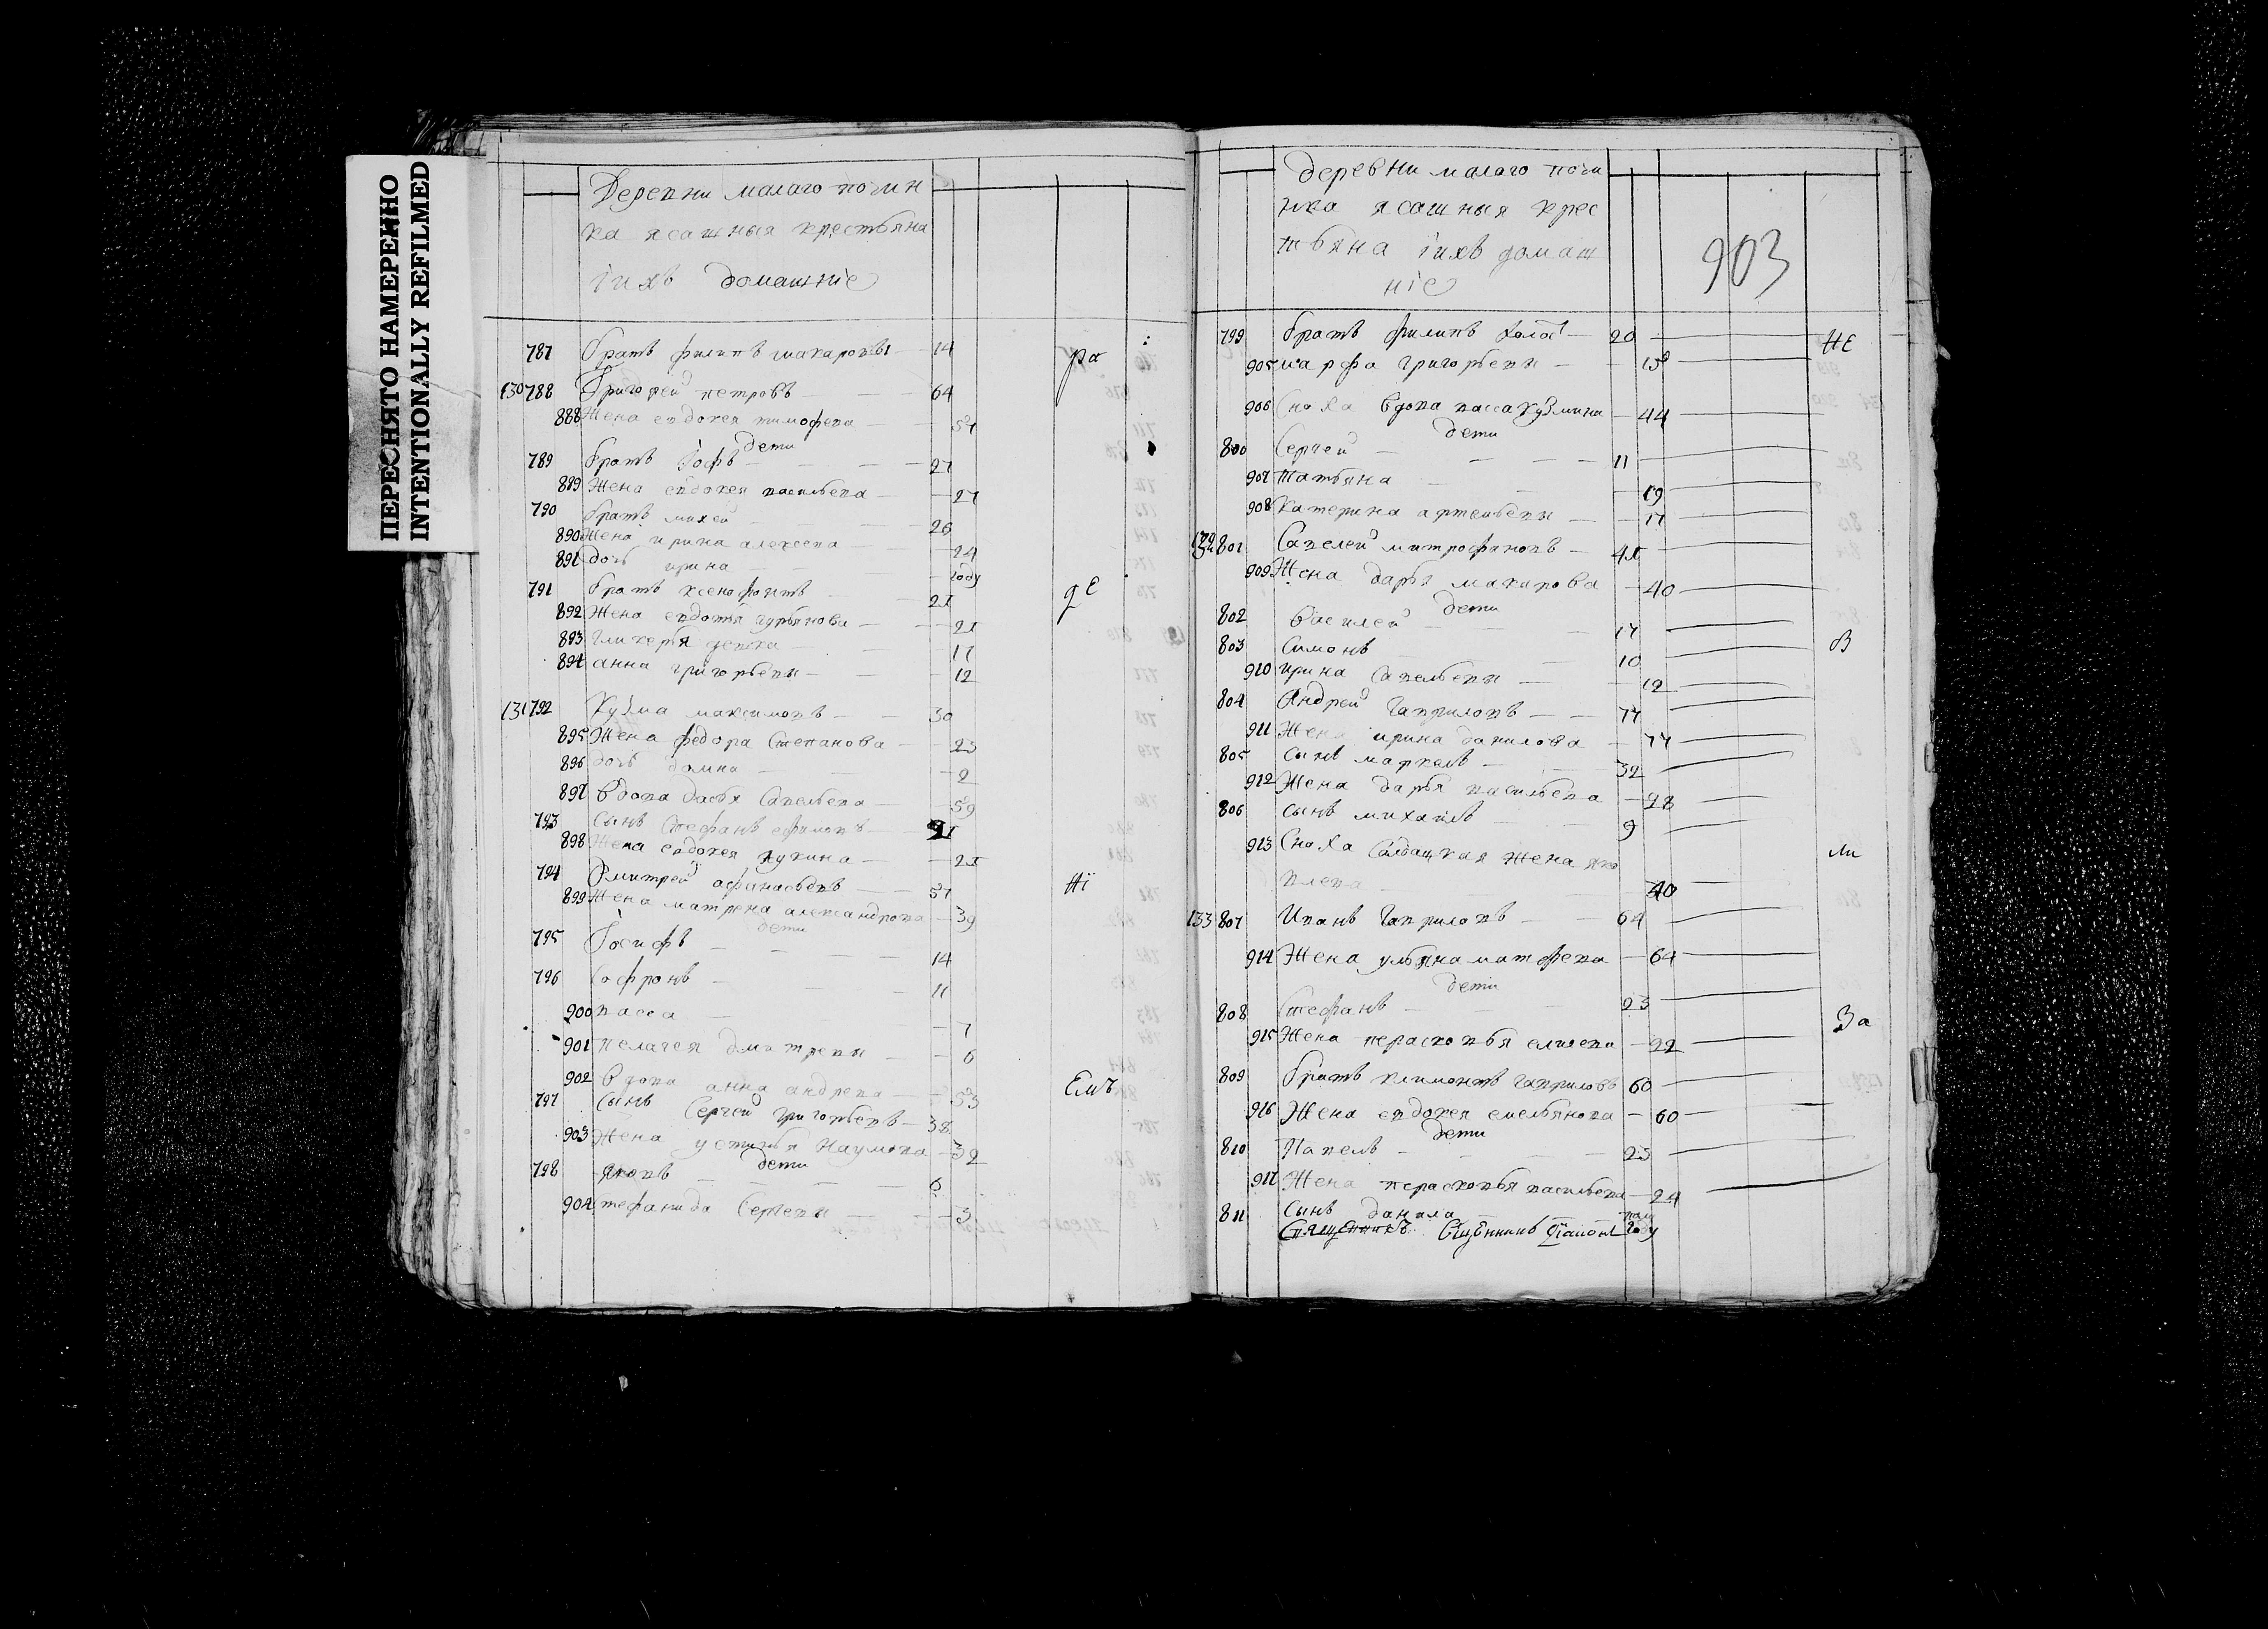 ПЕРЕСНЯТО НАМЕРЕННО
INTENTIONALLY REFILMED
Деревни малаго почин
ка ясашныя крестьяна
іихъ домашніе
787 братъ филипъ макаровы 14
ра
130 788 Григорей петровъ 64
888 Жена евдокея тимофева 54
дети
789 братъ іофъ 27
889 Жена евдокея васильева 27
790 братъ михей 26
890 Жена ирина алексеева 24
891 дочь ирина году
791 братъ ксенофонтъ
892 Жена евдотья гурьянова
893 гликерья девка 17
894 анна григорьевы 12
131 792 Кузма максимовъ 30
895 Жена федора Степанова 23
896 дочь домна 2
897 Вдова дарья Савельева 59
793 сынъ Стефанъ ефимовъ
898 Жена евдокея лукина
794 Дмитрей афинасьевъ 57
ні
899 Жена матрена александрова 39
дети
795 Іосифъ 14
796 Софронъ 11
900 васса 7
901 пелагея дмитревы 6
902 Вдова анна андрева 53
Емъ
797 сынъ Сергей григорьевъ 38
903 Жена устинья Наумова 32
дети
798 яковъ 6
904 стефанида Сергевы 3
деревни малаго почи
нка ясашныя крес
тьяна іихъ домаш
ніе
903
799 братъ филипъ холост 20
НЕ
905 марфа григорьевы
906 Сноха вдова васса кузмина 44
дети
800 Сергей 11
907 татьяна 19
908 Катерина артемьевы 17
801 Савелей митрофановъ
909 Жена дарья макарова 40
дети
802 Василей 17
803 Симонъ 10
В
910 ирина Савельевы 12
804 Андрей Гавриловъ 77
911 Жена ирина данилова 77
805 Сынъ маркелъ 32
912 Жена дарья васильева 28
806 Сынъ михаилъ 9
913 Сноха Салдацкая жена яко
влева 40
133 807 Иванъ Гавриловъ 64
914 Жена ульяна матфева 64
дети
808 Стефанъ 23
За
915 Жена перасковья елисева 22
809 братъ климонтъ гавриловъ 60
916 Жена евдокея емельянова 60
дети
810 Павелъ 23
917 Жена перасковья васильева 24
811 Сынъ данила полу году